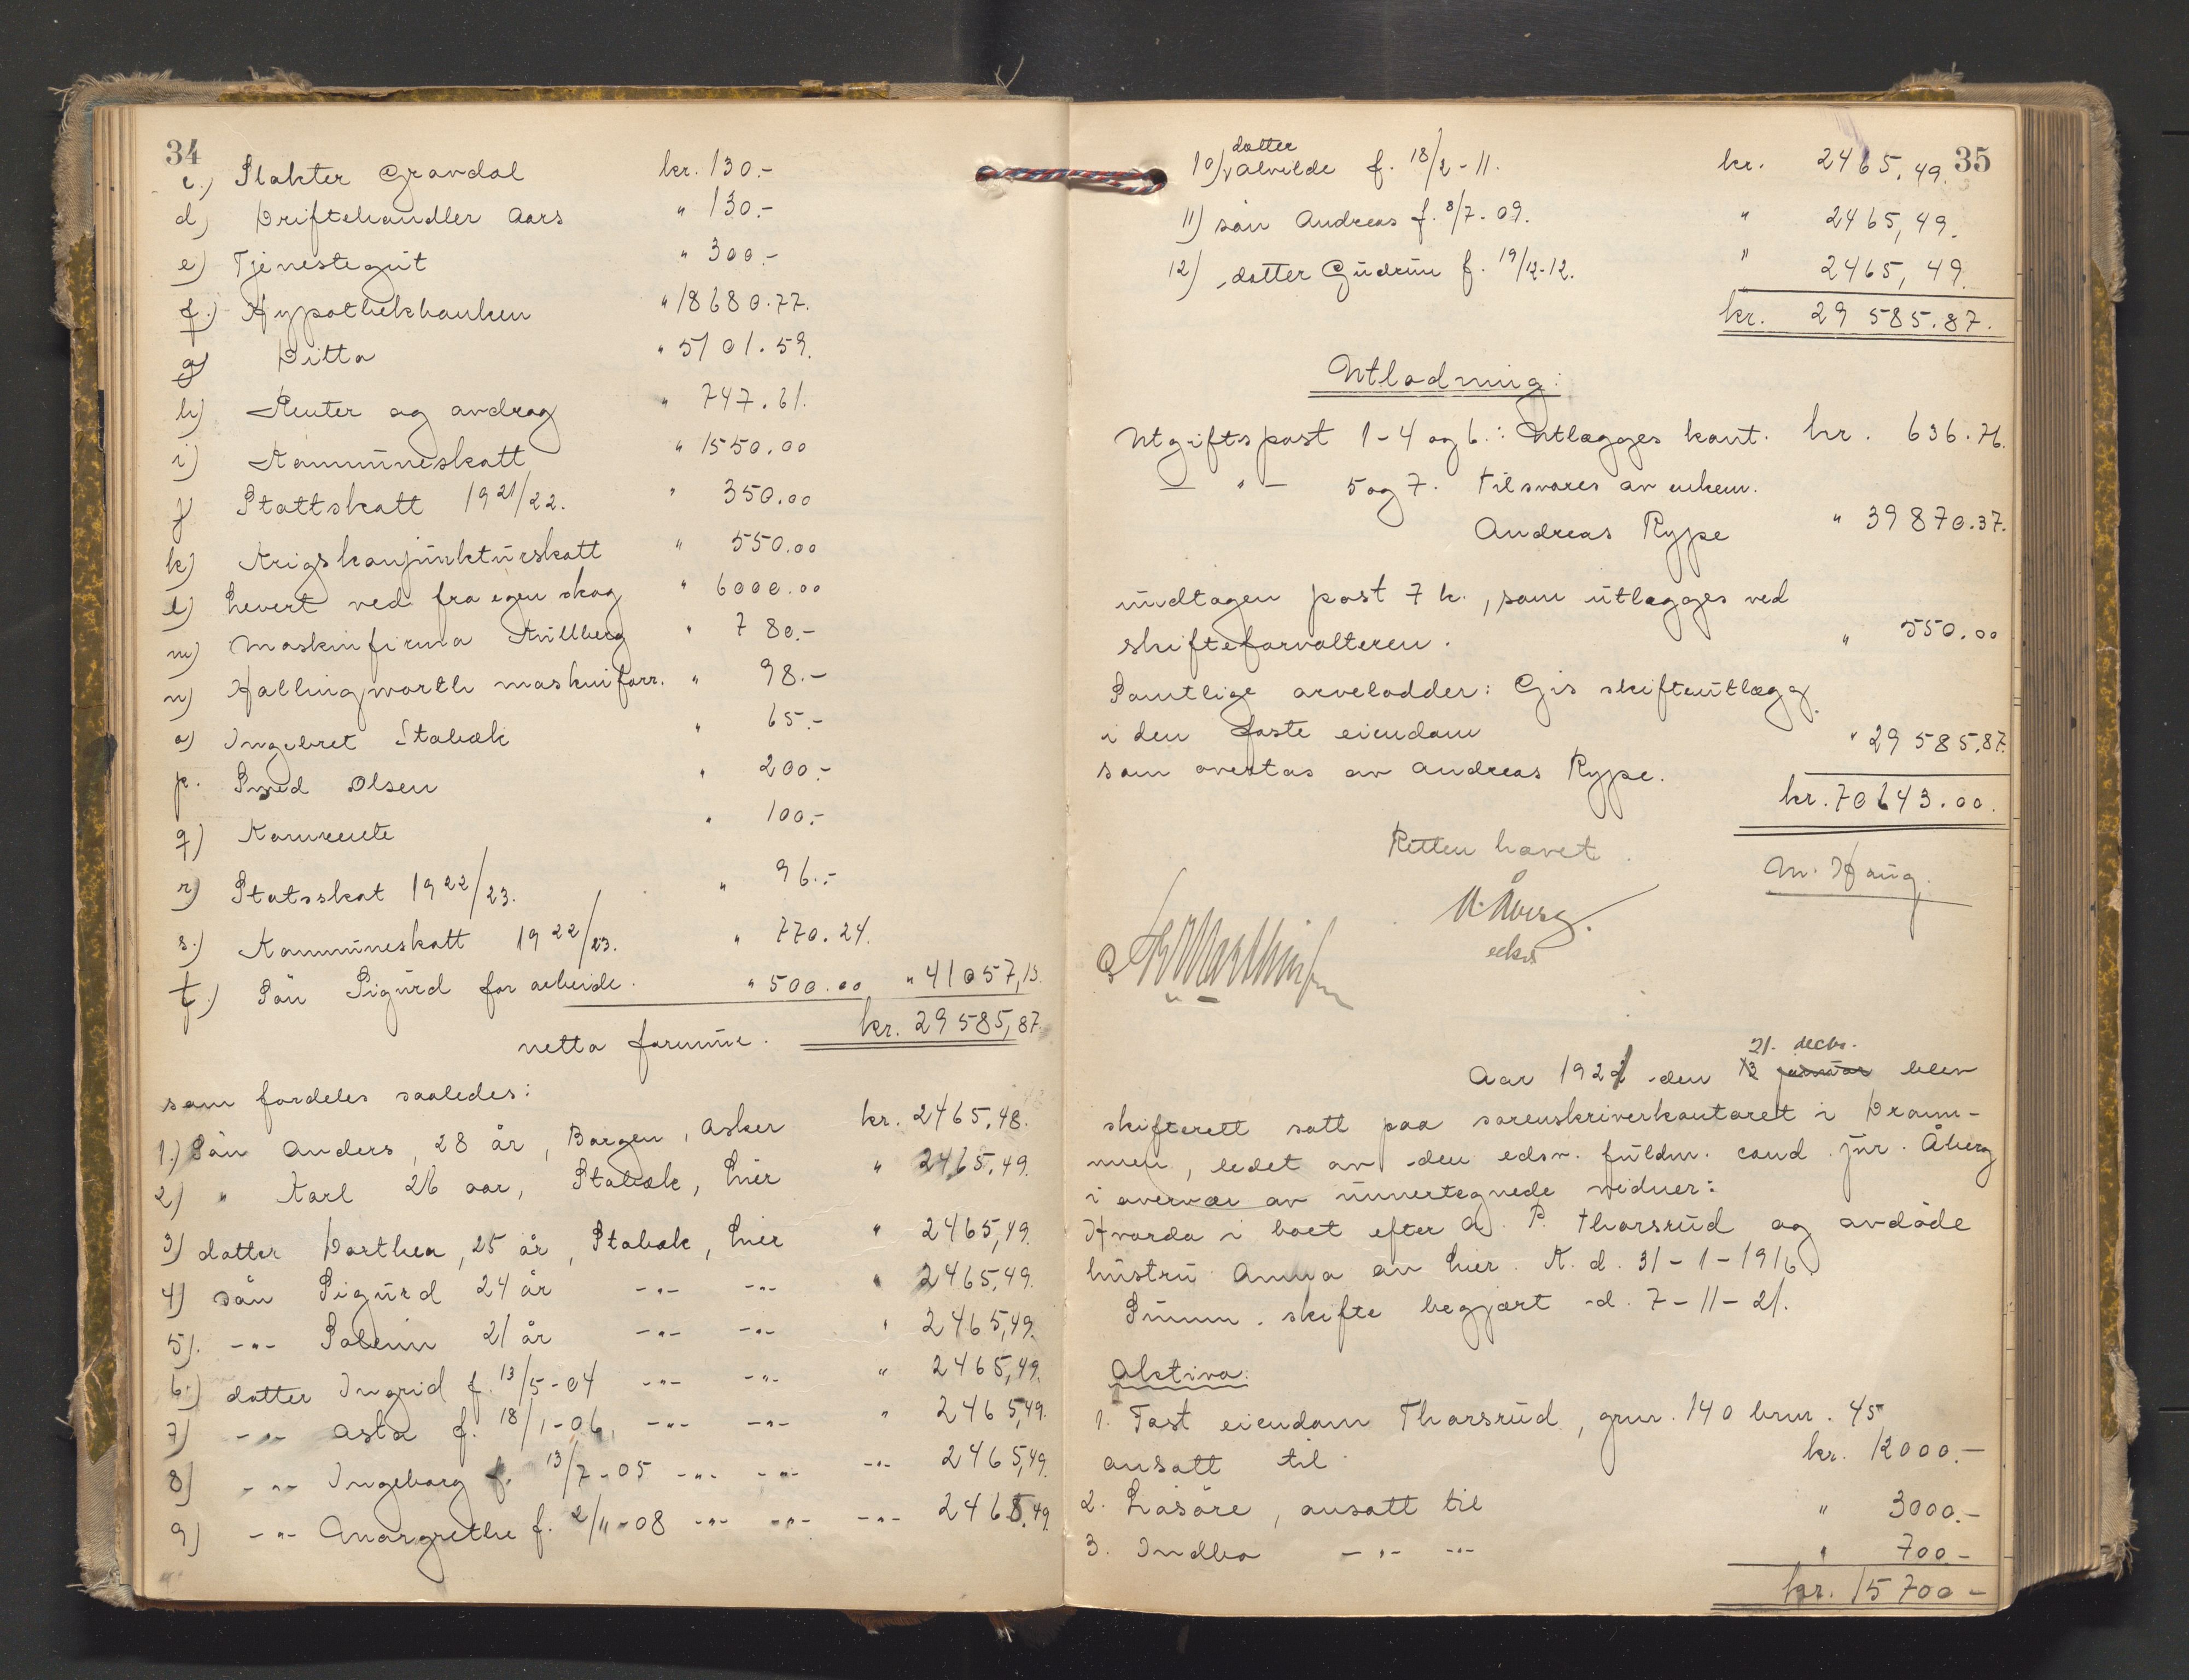 34
c.) Slakter Grandal kr. 130.-
d) Driftehandler Aars " 130.-
e) Tjenestegut " 300.-
f.) Hypothekbanken " 18680.77.
g) Ditto " 5101.59.
h) Renter og avdrag " 747.61.
i) Kommuneskatt " 1550.00
j) Stattskatt 1921/22. " 350.00
k) Krigskonjunkturskatt " 550.00
l) Levert ved fra egen skog " 6000.00
m) Maskinfirma Kullberg " 780.-
n) Hallingworth maskinforr. " 98.-
o) Ingebret Stabæk " 65.-
p. Smed Olsen " 200.-
q) Kornrente " 100.-
r) Statsskat 1922/23. " 96.-
s.) Kommuneskatt 1922/23. " 770.24.
t.) Sön Sigurd for arbeide. " 500.00 " 41057,13.
netto formue. kr. 29585,87.
som fordeles saaledes:
1.) Sön Anders, 28 år, Borgen, Asker kr. 2465,48.
2) " Karl 26 aar, Stabæk, Lier " 2465,49.
3) datter Dorthea, 25 år, Stabæk, Lier " 2465,49.
4) sön Sigurd 24 år -"- -"- " 2465,49.
5). -"- 21 år -"- -"- " 2465,49.
6.) datter Ingrid f. 13/5-04 -"- -"- " 2465,49.
7) -"- Asta f. 18/1-06, -"- -"- " 2465,49.
8) -"- Ingeborg f. 13/7-05 -"- -"- -"- 2465,49.
9) -"- Margrethe f. 2/11-08 -"- -"- -"- 2465,49.
35
10) datter Alvilde f. 18/2-11. kr. 2465,49.
11) sön Andreas f. 8/7-09. " 2465,49.
12) datter Gudrun f. 19/12-12. " 2465,49.
kr. 29585.87.
Utlodning:
Utgiftspost 1-4 og 6.: Utlægges kont. kr. 636.76.
— " — 5 og 7. tilsvares av enkem.
Andreas Rype " 39870.37.
undtagen post 7 k., som utlægges ved
skifteforvalteren. " 550.00
Samtlige arvelodder: Gis skifteutlægg
i den faste eiendom " 29585,87.
som overtas av Andreas Rype.
kr. 70643.00.
Retten hævet.
M. Haug.
Aar 1921 den 13 januar 21. decbr. blev
skifterett satt paa sorenskriverkontoret i Dram-
men, ledet av den edsv. fuldm. cand. jur. Åberg
i overvær av unnertegnede vidner:
Hvorda i boet efter A. P. Thorsrud og avdöde
hustru Anna av Lier. K. d. 31-1-1916.
Summ. skifte begjært d. 7-11-21.
Aktiva:
1. Fast eiendom Thorsrud, gnr. 140 brnr. 45
ansatt til kr. 12000.-
2. Lösöre, ansatt til " 3000.-
3. Indbo -"- -"- " 700-
kr. 15700-